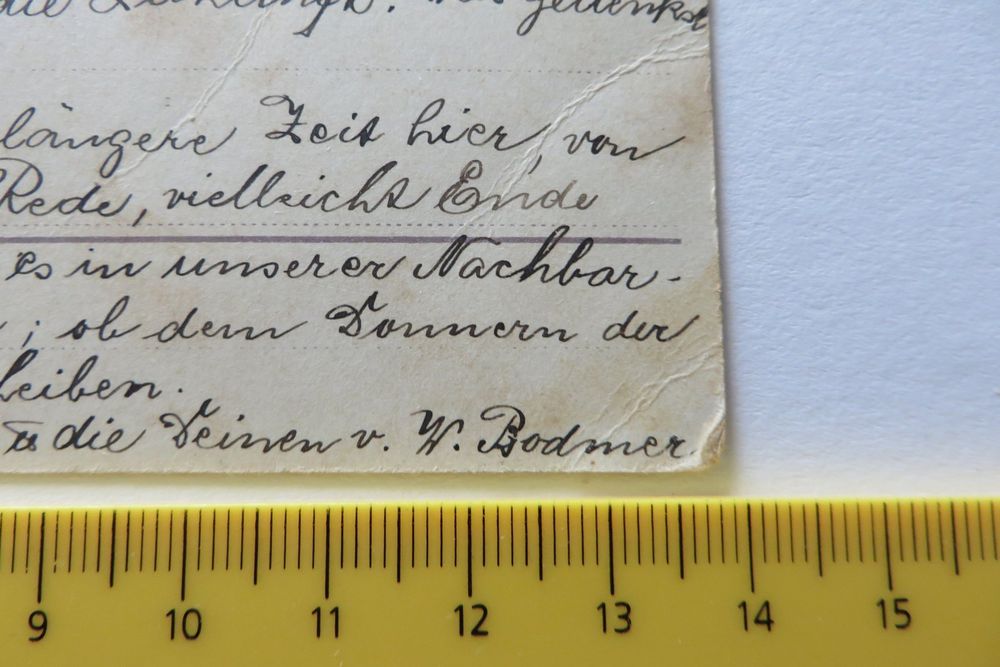 längere Zeit hier, von
Rede, vielleicht Ende
es in unserer Nachbar-
; ob dem Donnern der
die Deinen v. W. Bodmer.
9 10 11 12 13 14 15